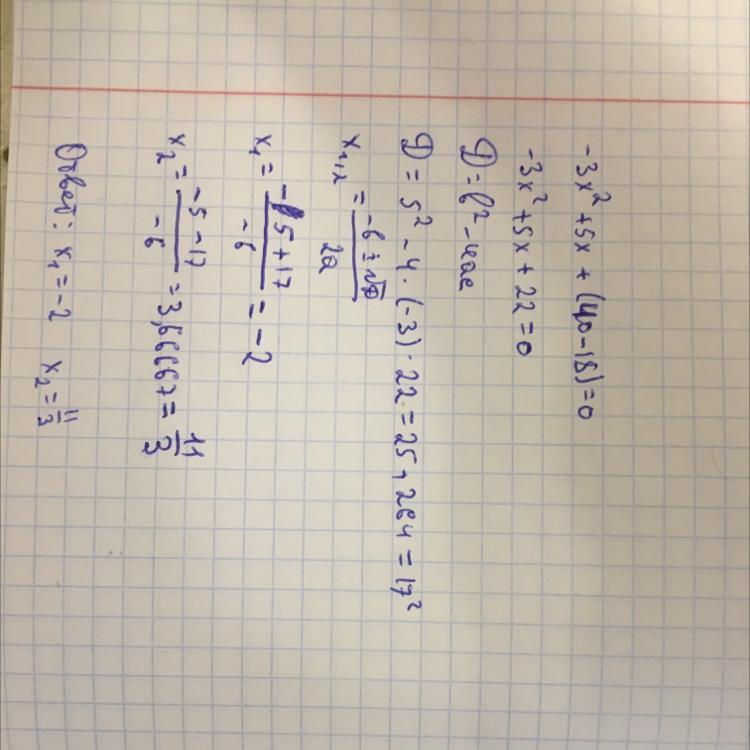 -3x² + 5x + (40-18) = 0
-3x² + 5x + 22 = 0
D = b² - 4ac
D = 5² - 4 · (-3) · 22 = 25 + 264 = 17²
x₁,₂ = (-b ± √D) / 2a
x₁ = (-5 + 17) / -6 = -2
x₂ = (-5 - 17) / -6 = 3,66667 = 11/3
Ответ: x₁ = -2 x₂ = 11/3